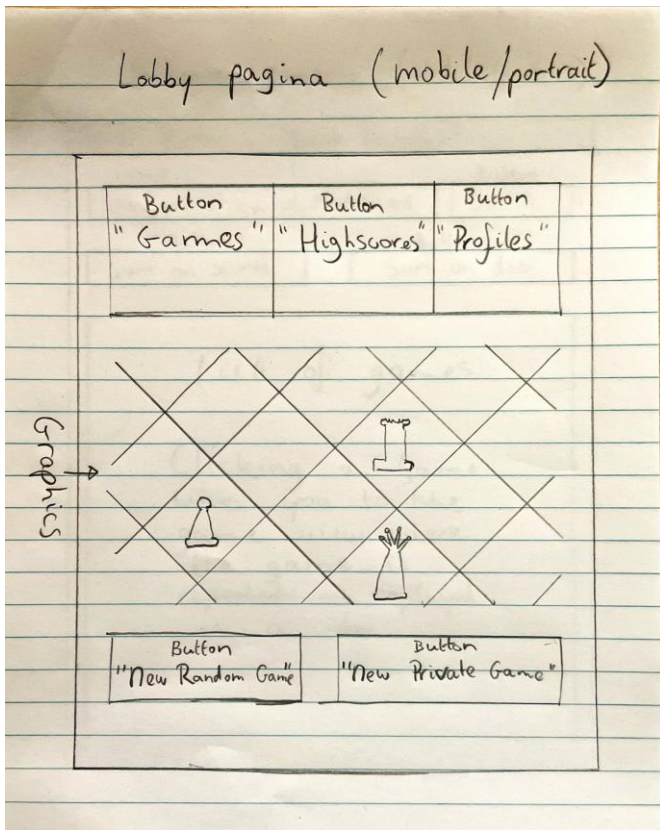 Lobby pagina (mobile/portrait)
Button
"Games"
Button
"Highscores"
Button
"Profiles"
Graphics
Button
"New Random Game"
Button
"New Private Game"